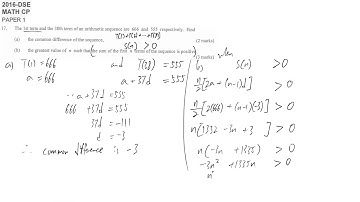 2016-DSE
MATH CP
PAPER 1
17. The 1st term and the 38th term of an arithmetic sequence are 666 and 555 respectively. Find
(a) the common difference of the sequence, (2 marks)
S(n) > 0
(b) the greatest value of n such that the sum of the first n terms of the sequence is positive. (3 marks)
a) T(1) = 666 and T(38) = 555
a = 666 a + 37d = 555
∴ a + 37d = 555
666 + 37d = 555
37d = -111
d = -3
∴ common difference is -3
b) when S(n) > 0
n/2 [2a + (n-1)d] > 0
n/2 [2(666) + (n-1)(-3)] > 0
n [1332 - 3n + 3] > 0
n (-3n + 1335) > 0
-3n² + 1335n > 0
n²